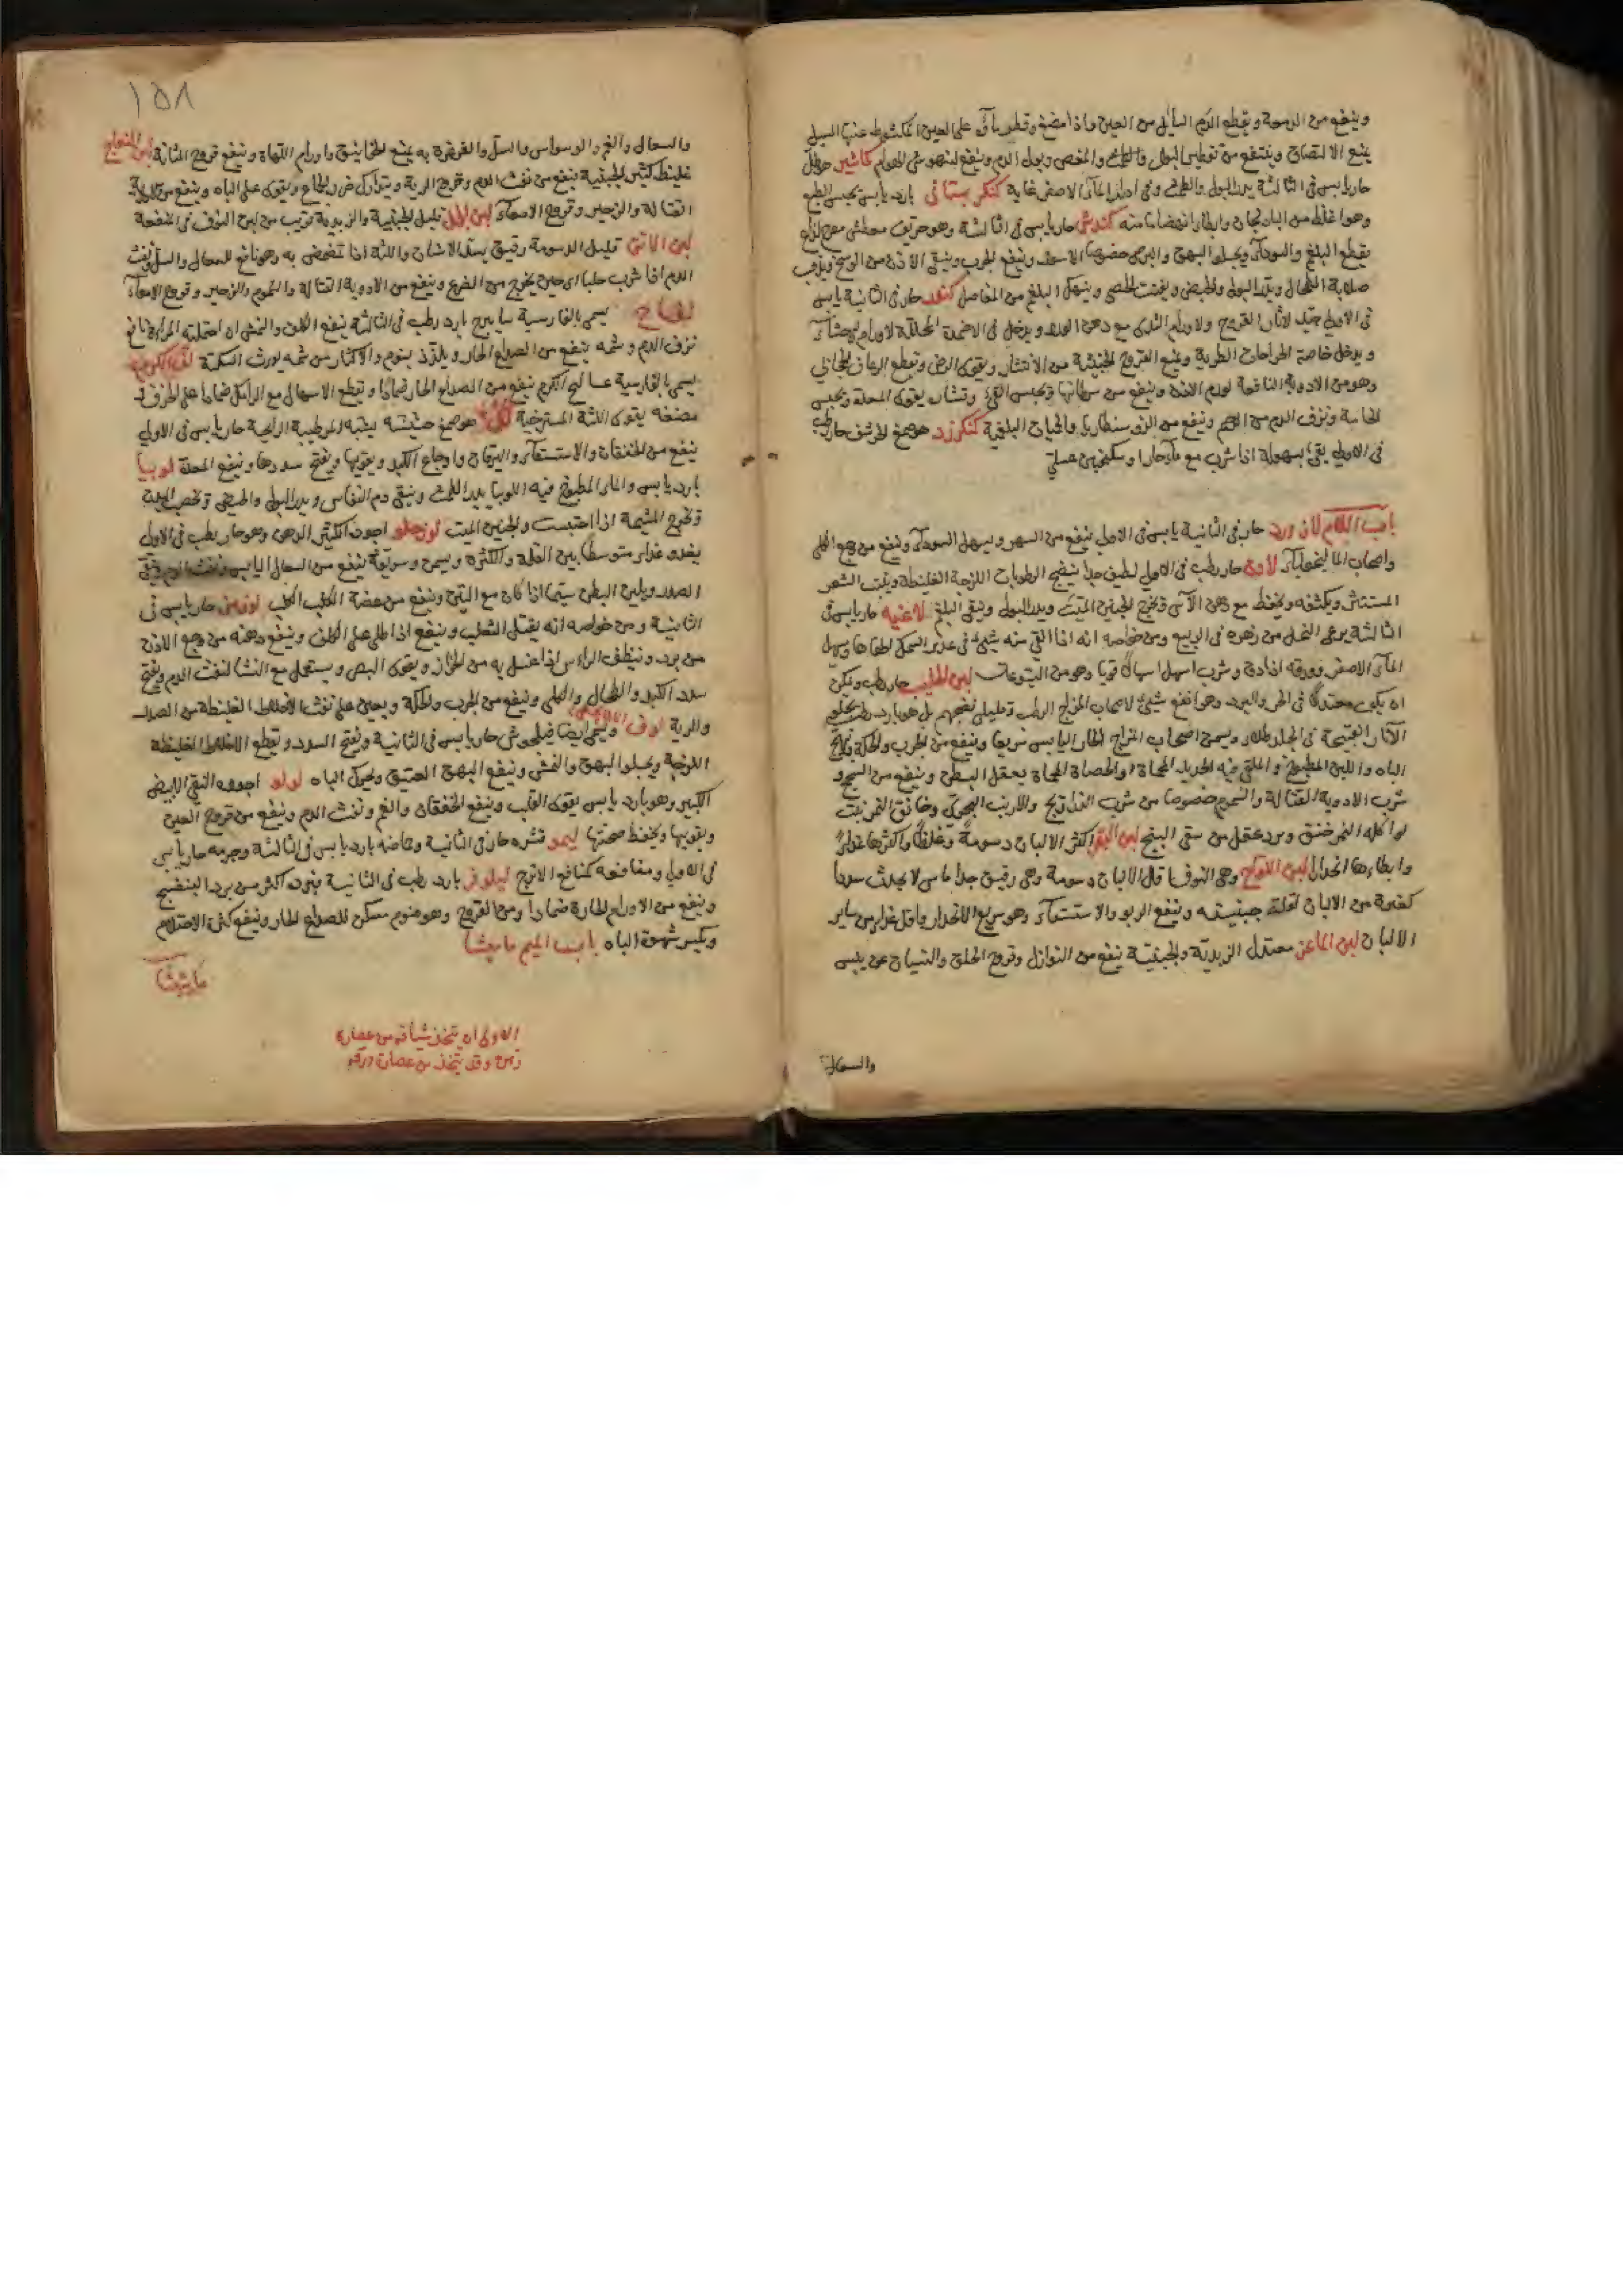 وينفع من الدمعة ويقطع الدم السايل من العين واذا مضغ وقطر ماؤه على العين المكشوطه عنها السبل
يمنع الالتصاق وينتفع من تقطير البول والمغص وبول الدم وينفع لنهوش الهوام كاشير
حار يابس فى الثالثة يدر البول والطمث وفى اصدار الماء الاصفر غاية كنكر بستانى بارد يابس يحبس الطبع
وهو اغلظ من الباذنجان وابطأ انهضاما منه كندش حار يابس فى الثالثة وهو حريف معطش
يقطع البلغم والسوداء ويجلو البهق والبرص خصوصا الاسود وينفع الجرب وينقى الاذن من الوسخ ويذهب
صلابة الطحال ويدر البول والحيض ويفتت الحصى ويسهل البلغم من المفاصل كندر حار فى الثانية يابس
فى الاولى جيد لاثار القروح ولاورام الثدى مع دهن الورد ويدخل فى الاضمدة المحللة لاورام الاحشاء
ويدمل خاصة الجراحات الطرية ويمنع القروح الخبيثة من الانتشار ويقوى الذهن ويقطع الرعاف الحجابى
وهو من الادوية النافعة لورم الاذن وينفع من سرطانها ويحبس القئ يقوى المعدة ويحبس
ونزف الدم من الرحم وينفع من الذوسنطاريا والحميات البلغمية كنكرزد هو صمغ الحرشف حار رطب
فى الاولى يقئ بسهولة اذا شرب مع ماء حار او سكنجبين عسلى
باب اللام لازورد حار فى الثانية يابس فى الاولى ينفع من السهر ويسهل السوداء وينفع من وجع الكلى
واصحاب الماليخوليا لادن حار رطب فى الاولى لطيف جدا ينضج الرطوبات اللزجة الغليظة وينبت الشعر
المتناثر ويكثفه ويحفظ مع دهن الآس ويخرج الجنين الميت ويدر البول وينقى البلغم لاغيه حار يابس فى
الثالثة يرعى النحل من زهره فى الربيع ومن خواصه انه اذا القى منه شيئ فى غدير السمك اطفاها ويسهل
الماء الاصفر وورقه اذا دق وشرب اسهل اسهالا قويا وهو من اليتوعات لبن الحليب حار رطب
ان يكون معتدلا فى الحر والبرد وهو انفع شيئ لاصحاب المزاج الرطب بل هو بارد رطب يجلو
الآثار القبيحة فى الجلد طلاء ويسمن اصحاب المزاج الحار اليابس سريعا وينفع من الجرب والحكة ويهيج
الباه واللبن المطبوخ والملقى فيه الحديد المحماة او الحصاة المحماة يعقل البطن وينفع من السحج و
شرب الادوية القتالة والسموم خصوصا من شرب الذراريح والارنب البحرى وخانق النمر نبت
لو اكله النمر خنق ويرد عقل من سقى البنج لبن البقر اكثر الالبان دسومة وغلظا واكثرها غذاء
وابطاءها انحدارا لبن اللقاح وهى النوق اقل الالبان دسومة وهى رقيق جدا ماس لا يحدث سددا
كغيره من الالبان لقلة جبنيته وينفع الربو والاستسقاء وهو سريع الانحدار واقل غذاء من ساير
الالبان لبن الماعز معتدل الزبدية والجبنية ينفع من النوازل وقروح الحلق واللسان عن يبس
والسعال
١٥٨
والسعال والغم والوسواس والسل والغرغرة به يمنع الخوانيق واورام اللهاة وينفع قروح المثانة لبن النعاج
غليظ كثير الجبنية ينفع من نفث الدم وقروح الرية ويتدارك ضرر الجماع ويقوى على الباه وينفع من الادوية
القتالة والزحير وقروح الامعاء لبن الخيل قليل الجبنية والزبدية قريب من لبن النوق فى المنفعة
لبن الاتن قليل الدسومة رقيق يشد الاسنان واللثة اذا تمضمض به وهو نافع للسعال والسل ونفث
الدم اذا شرب حليبا اى حين يخرج من الضرع وينفع من الادوية القتالة والسموم والزحير وقروح الامعاء
لفاح يسمى بالفارسية سابيرج بارد رطب فى الثالثة ينفع الكلف والنمش ان احتملته المراءة نافع
نزف الدم وشمه ينفع من الصداع الحار بنوم والاكثار من شمه يورث السكتة لف الكرم
يسمى بالفارسية الكرم ينفع من الصداع الحار ضمادا ويقطع الاسهال مع الرامك ضمادا على الطرف و
مضغه يقوى اللثة المسترخية لك هو صمغ حشيشه يشبه المر طيبة الرايحة حار يابس فى الاولى
ينفع من الخفقان والاستسقاء واليرقان واوجاع الكبد ويقويها ويفتح سددها وينفع المعدة لوبيا
بارد يابس والماء المطبوخ فيه اللوبيا يدر الطمث وينقى دم النفاس ويدر البول والحيض ويخصب البدن
ويخرج المشيمة اذا احتبست والجنين الميت لوز حلو اجوده الكثير الدهن وهو حار رطب فى الاولى
يغذو غذاء متوسطا بين القلة والكثرة ويسمن وسويقه ينفع من السعال اليابس ونفث الدم وينقى
الصدر ويلين البطن سيما اذا كان مع التين وينفع من عضة الكلب الكلب لوز مر حار يابس فى
الثانية ومن خواصه انه يقتل الثعلب وينفع اذا طلى على الكلف وينفع دهنه من وجع الاذن
من برد وينظف الراس اذا غسل به من الحزاز ويقوى البصر ويستعمل مع النشا لنفث الدم ويفتح
سدد الكبد والطحال والكلى وينفع من الجرب والحكة ويعين على نفث الاخلاط الغليظة من الصدر
والرية لوف ويسمى ايضا فيلجوش حار يابس فى الثانية ويفتح السدد ويقطع الاخلاط الغليظة
اللزجة ويجلو البهق والنمش وينفع البهق العتيق ويحرك الباه لولو اجوده النقى الابيض
الكبير وهو بارد يابس يقوى القلب وينفع الخفقان والغم ونفث الدم وينفع من قروح العين
ويقويها ويحفظ صحتها ليمو قشره حار فى الثانية وحماضه بارد يابس فى الثالثة وجرمه حار يابس
فى الاولى ومنافعه كمنافع الاترج لينوفر بارد رطب فى الثانية برده اكثر من برد البنفسج
وينفع من الاورام الحارة ضمادا ومن القروح وهو منوم مسكن للصداع الحار وينفع كثرة الاحتلام
ويكسر شهوة الباه باب الميم ماميثا
الاولى ان يتخذ شيافه من عصارة
زهره وقد يتخذ من عصارة ورقه